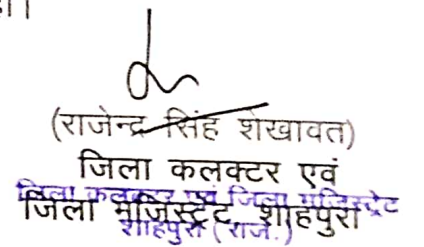 (राजेन्द्र सिंह शेखावत)
जिला कलक्टर एवं
जिला मजिस्ट्रेट शाहपुरा
जिला कलक्टर एवं जिला मजिस्ट्रेट
शाहपुरा (राज.)